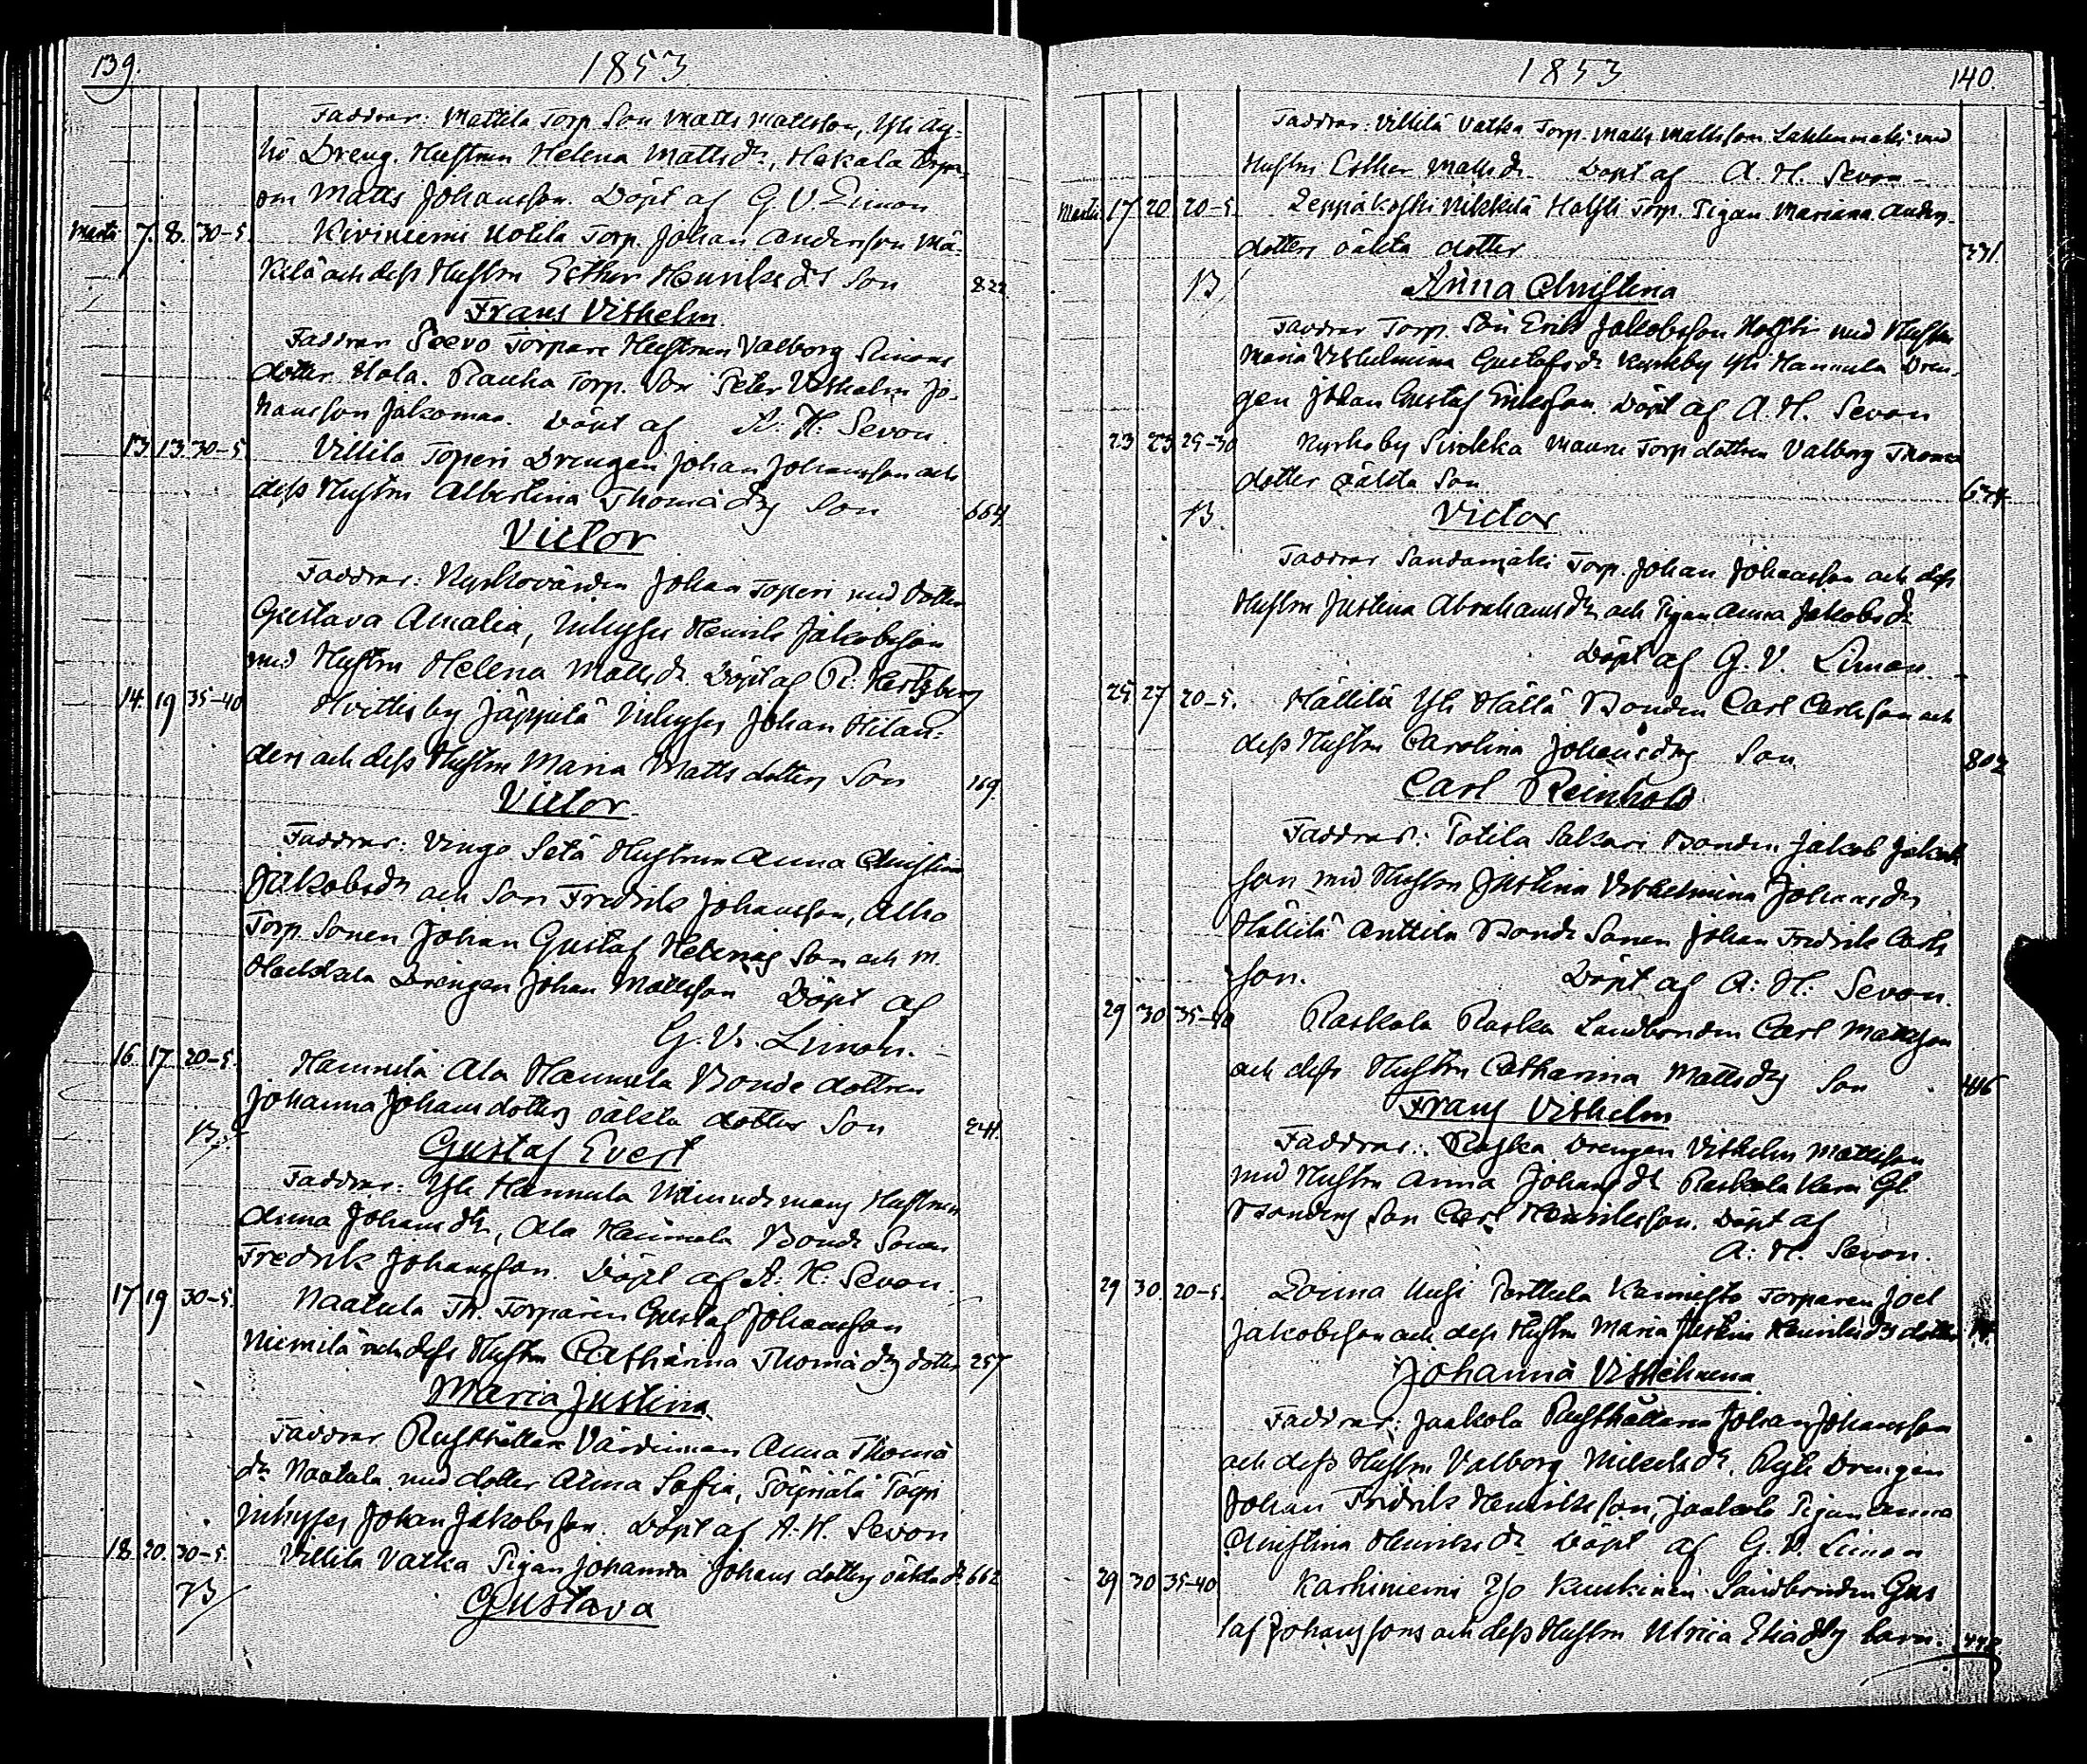 139. 1853
Faddrar: Mattila Torp Son Matts Mattsson, Yli Äy-
hö Dreng. Hustrun Helena Mattsdr, Hakala Torpa-
ren Matts Johansson. Döpt af G V Limon
Martii 7. 8. 30-5. Kiviniemi Uotila Torp. Johan Andersson Mä-
kelä och dess Hustru Esther Henriksdrs Son 822
Frans Vilhelm
Faddrar Torpare Hustrun Valborg Simons
dotter Hola. Rauha Torp. Son Peter Vilhelm Jo-
hansson Jakomaa. Döpt af A. H. Sevon.
13 13 30-5 Villilä Toperi Drengen Johan Johansson och
dess Hustru Albertina Thomädrs Son 664
Victor
Faddrar: Kyrkovärden Johan Toperi med dotter
Gustava Amalia, Inhyses Henrik Jakobsson
med Hustru Helena Mattsdr. Döpt af R. Hertzberg
14. 19 35-40 Hvittisby Jäppilä Inhyses Johan Hilan-
ders och dess Hustru Maria Matts dotters Son 169.
Victor
Faddrar: Vinge Setä Hustrun Anna Christina
Jakobsdr och Son Fredrik Johansson, Alho
Torp. Sonen Johan Gustaf Helenas Son och M.
Drengen Johan Mattsson Döpt af
G. V. Limon.
16. 17. 20-5. Hannula Ala Hannula Bonde dottren
Johanna Johansdotters oäkta dotter Son 241.
B. Gustaf Evert
Faddrar: Yli Hannula Hustrun
Anna Johansdr, Ala Hannula Bonde Sonen
Fredrik Johansson. Döpt af A: H: Sevon.
17 19 30-5. Naatula Th. Torparen Gustaf Johansson
Niemilä och dess Hustru Catharina Thomädrs dotter 257
Maria Justina
Faddrar Rusthållare Värdinnan Anna Thomä
dr Naatula med dotter Anna Sofia, Töyrälä Töyri
Inhyses Johan Jakobsson. Döpt af A. H. Sevon
18. 20. 30-5. Villila Vatka Pigan Johanna Johans dotters oäkta dr 662
B Gustava
1853 140.
Faddrar: Villilä Vatka Torp. Matts Mattsson Lahdenmäki med
Hustru Esther Mattsdr. Döpt af A. H. Sevon
Martii 17 20 20-5. Leppäkoski Nikkilä Holsti Torp. Pigan Mariana Anders-
dotters oäkta dotter 331
B Anna Christina
Faddrar Torp. Son Erik Jakobsson Holsti med Hustru
Maria Vilhelmina Gustafsdr Kyrkby Yli Hannula Dren-
gen Johan Gustaf Eriksson. Döpt af A. H. Sevon
23 23 25-30 Kyrkoby Sirkka Mauri Torp dottren Valborg Thomæ
dotter oäkta Son
B. Victor
Faddrar Sandanmäki Torp. Johan Johansson och dess
Hustru Justina Abrahamsdr och Pigan Anna Jakobsdr
Döpt af G. V. Limon.
25 27 20-5. Hällilä Yli Hällä Bonden Carl Carlsson och
dess Hustru Carolina Johansdrs Son 802
Carl Reinhold
Faddrar: Potila Sakari Bonden Jakob Jakobs
son med Hustru Justina Vilhelmina Johansdr
Hällilä Anttila Bonde Sonen Johan Fredrik Carls
son. Döpt af A: H: Sevon.
29 30 35-40 Raskala Raska Landbonden Carl Mattsson
och dess Hustru Catharina Mattsdrs Son 446
Frans Vilhelm
Faddrar: Raska Drengen Vilhelm Mattsson
med Hustru Anna Johansdr Raskala
Bondens Son Carl Henriksson. Döpt af
A: H. Sevon.
29 30. 20-5. Loima Uusi Perttula Kannisto Torparen Joel
Jakobsson och dess Hustru Maria Justina Henriksdrs dotter
Johanna Vilhelmina
Faddrar: Jaakola Rusthållaren Johan Johansson
och dess Hustru Valborg Mickelsdr. Ryli Drengen
Johan Fredrik Henriksson, Jaakola Pigan Anna
Christina Henriksdr Döpt af G. V. Limon
29 30 35-40 Karhiniemi Yjo Kuuskinen Landbonden Gus
taf Johanssons och dess Hustru Ulrica Eliædrs barn. 448